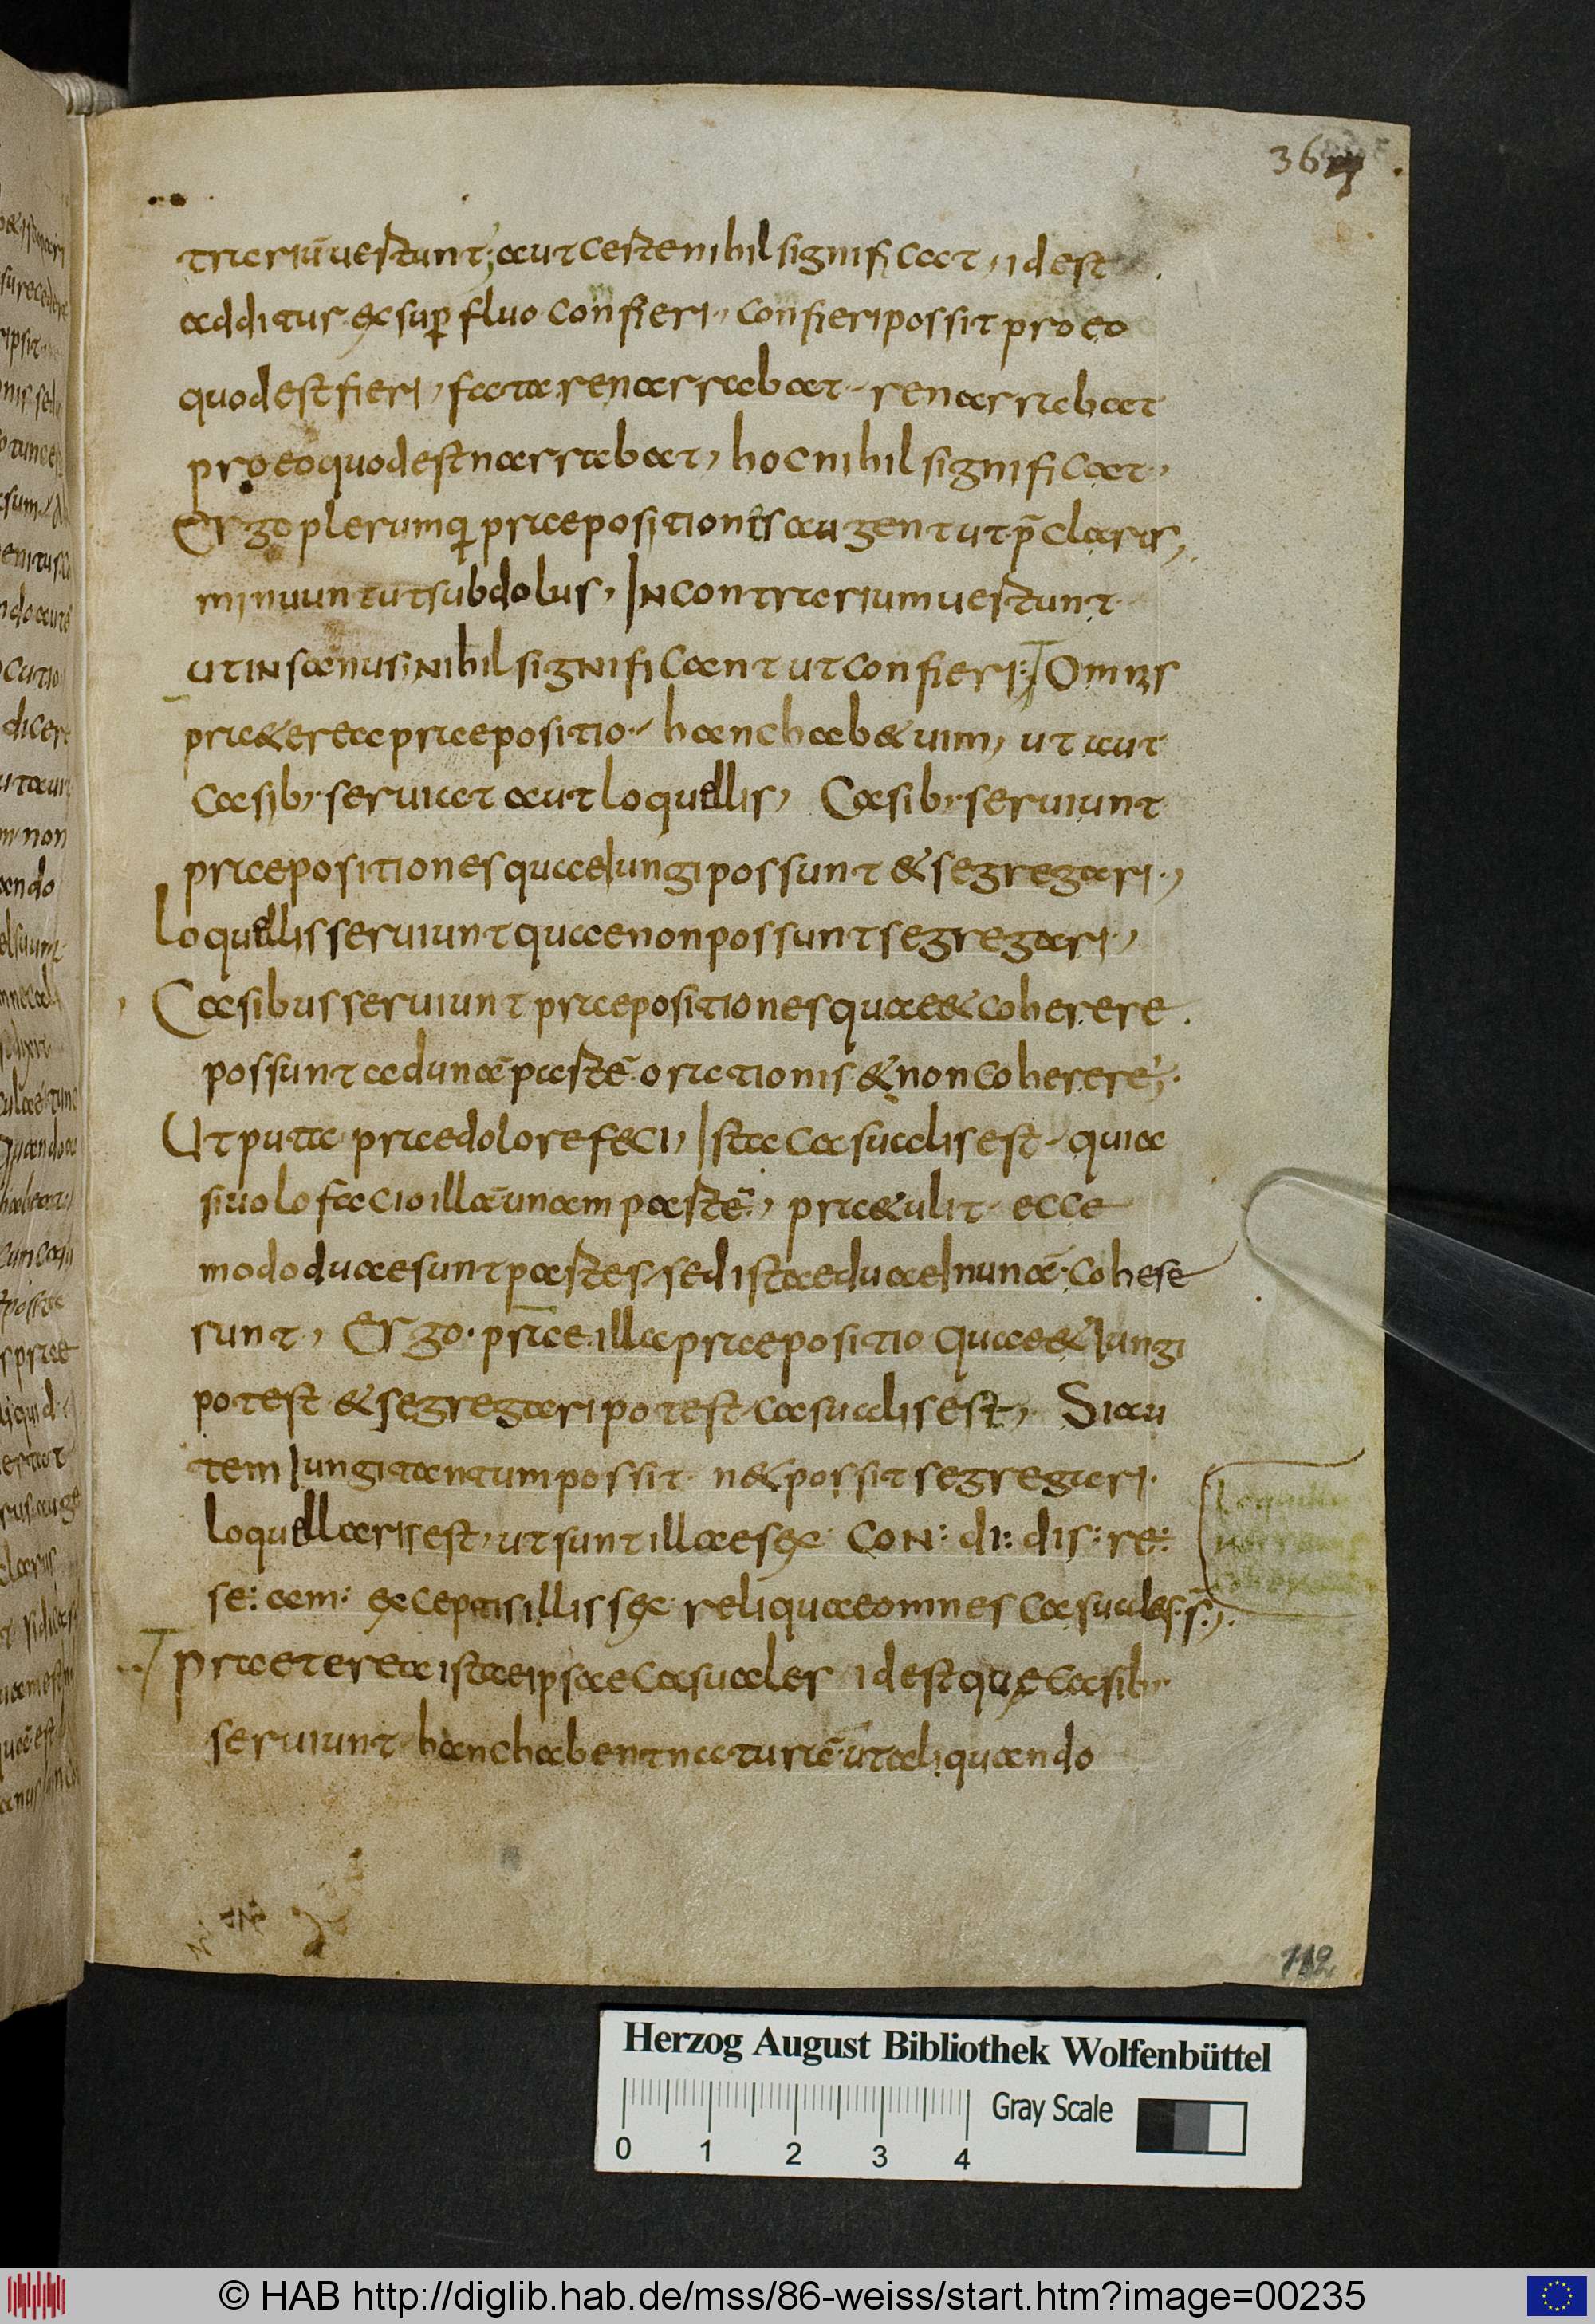 36
trariū uertunt; aut certe nihil significat, id est
additur ex suꝑfluo confieri, confieri possit pro eo
quod est fieri, facta renarrabat renarrabat
pro eo quod est narrabat, hoc nihil significat,
Ergo plerumq; praepositiones augent ut p̄clarus,
minuunt ut subdolus, In contrarium uertunt
ut insanus, nihil significant ut confieri; Omnis
praeterea praepositio hanc habet uim, ut aut
casib; seruiat aut loquellis, Casib; seruiunt
praepositiones quae iungi possunt & segregari,
loquellis seruiunt quae non possunt segregari,
Casibus seruiunt praepositiones quae & coherere
possunt ad unā partē orationis & non coherere,
Ut puta prae dolore feci, Ista casualis est quia
si uolo facio illā unam partē, praetulit ecce
modo duae sunt partes, sed istae duae in unā coherse
sunt, Ergo prae illa praepositio quae & iungi
potest & segregari potest casualis est, Si au
tem iungi tantum possit n& possit segregari
loquellaris est, ut sunt illae sex con: di: dis: re:
se: am: exceptis illis sex reliquae omnes casuales s̄,
Praeterea istae ipsae casuales id est quę casib;
seruiunt hanc habent naturā ut aliquando
112
Herzog August Bibliothek Wolfenbüttel
Gray Scale
0 1 2 3 4
© HAB http://diglib.hab.de/mss/86-weiss/start.htm?image=00235